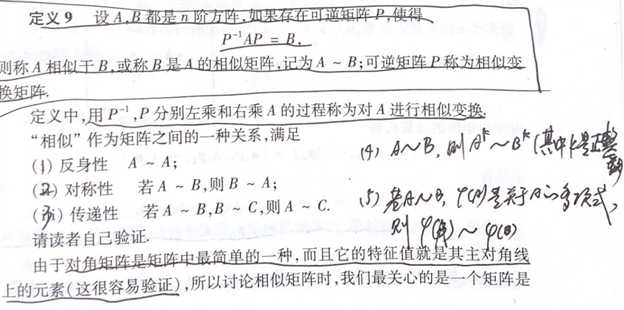 定义9 设A,B都是n阶方阵,如果存在可逆矩阵P,使得
P⁻¹AP = B,
则称A相似于B,或称B是A的相似矩阵,记为A ~ B;可逆矩阵P称为相似变
换矩阵.
定义中,用P⁻¹,P分别左乘和右乘A的过程称为对A进行相似变换.
“相似”作为矩阵之间的一种关系,满足
(1) 反身性 A ~ A;
(2) 对称性 若A ~ B,则B ~ A;
(3) 传递性 若A ~ B,B ~ C,则A ~ C.
(4) A~B, 则Aᵏ~Bᵏ (其中k是正整数)
(5) 若A~B, φ(A)是关于A的多项式,
则 φ(A) ~ φ(B)
请读者自己验证.
由于对角矩阵是矩阵中最简单的一种,而且它的特征值就是其主对角线
上的元素(这很容易验证),所以讨论相似矩阵时,我们最关心的是一个矩阵是